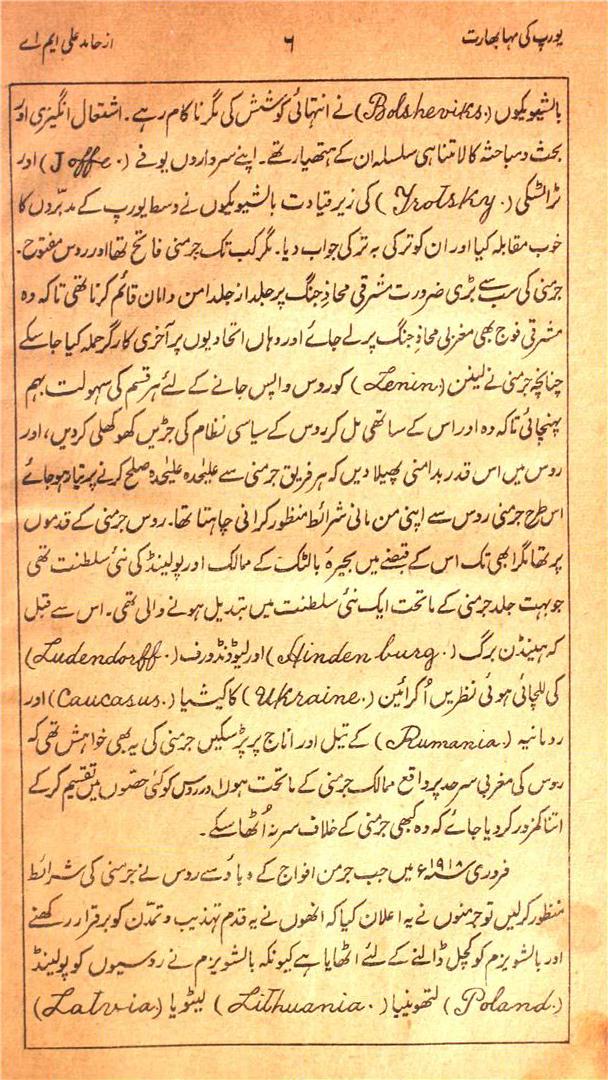 یورپ کی مہا بھارت
۶
از حامد علی ایم اے
بالشیویکوں (Bolsheviks.) نے انتہائی کوشش کی مگر ناکام رہے۔ اشتعال انگیزی اور
بحث و مباحثہ کا لامتناہی سلسلہ ان کے ہتھیار تھے۔ اپنے سرداروں یوفے (Joffe.) اور
ٹراٹسکی (Trotsky.) کی زیر قیادت بالشیویکوں نے وسط یورپ کے مدبّروں کا
خوب مقابلہ کیا اور ان کو ترکی بہ ترکی جواب دیا۔ مگر کب تک جرمنی فاتح تھا اور روس مفتوح۔
جرمنی کی سب سے بڑی ضرورت مشرقی محاذ جنگ پر جلد از جلد امن و امان قائم کرنا تھی تاکہ وہ
مشرقی فوج بھی مغربی محاذ جنگ پر لے جائے اور وہاں اتحادیوں پر آخری کارگر حملہ کیا جا سکے
چنانچہ جرمنی نے لینن (Lenin) کو روس واپس جانے کے لئے ہر قسم کی سہولت بہم
پہنچائی تاکہ وہ اور اس کے ساتھی مل کر روس کے سیاسی نظام کی جڑیں کھوکھلی کر دیں، اور
روس میں اس قدر بدامنی پھیلا دیں کہ ہر فریق جرمنی سے علیحٰدہ علیحٰدہ صلح کرنے پر تیار ہو جائے
اس طرح جرمنی روس سے اپنی من مانی شرائط منظور کرانی چاہتا تھا۔ روس جرمنی کے قدموں
پر تھا مگر ابھی تک اس کے قبضے میں بحیرۂ بالٹک کے ممالک اور پولینڈ کی نئی سلطنت تھی
جو بہت جلد جرمنی کے ماتحت ایک نئی سلطنت میں تبدیل ہونے والی تھی۔ اس سے قبل
کہ ہینڈن برگ (Hindenburg.) اور لیوڈنڈورف (Ludendorff.)
کی للچائی ہوئی نظریں اُکرائین (Ukraine.) کاکیشیا (Caucasus.) اور
رومانیہ (Rumania.) کے تیل اور اناج پر پڑ سکیں جرمنی کی یہ بھی خواہش تھی کہ
روس کی مغربی سرحد پر واقع ممالک جرمنی کے ماتحت ہوں اور روس کو کئی حصّوں میں تقسیم کر کے
اتنا کمزور کر دیا جائے کہ وہ کبھی جرمنی کے خلاف سر نہ اُٹھا سکے۔
فروری ۱۹۱۸ء میں جب جرمن افواج کے دباؤ سے روس نے جرمنی کی شرائط
منظور کر لیں تو جرمنوں نے یہ اعلان کیا کہ انھوں نے یہ قدم تہذیب و تمدّن کو برقرار رکھنے
اور بالشویزم کو کچل ڈالنے کے لئے اٹھایا ہے کیونکہ بالشویزم نے روسیوں کو پولینڈ
(Poland.) لتھونیا (Lithuania.) لیٹویا (Latvia.)